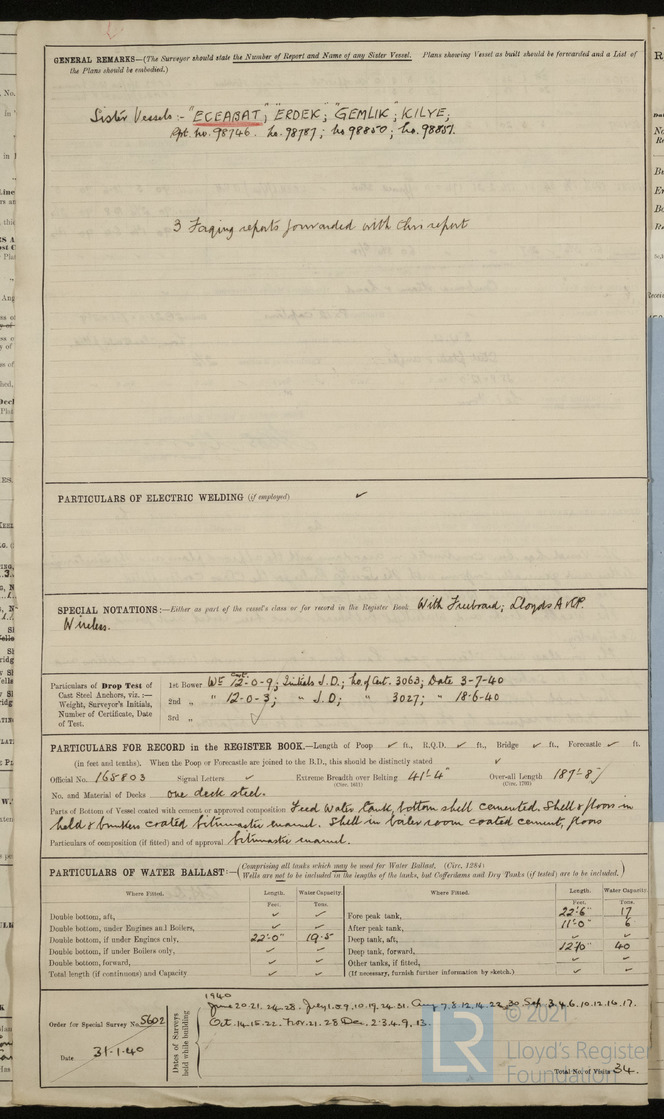 GENERAL REMARKS—(The Surveyor should state the Number of Report and Name of any Sister Vessel. Plans showing Vessel as built should be forwarded and a List of
the Plans should be embodied.)
Sister Vessels:- "ECEABAT"; "ERDEK"; "GEMLIK"; KILYE;
Rpt. No. 98746. No. 98787; No 98850; No. 98851.
3 Forging reports forwarded with this report
PARTICULARS OF ELECTRIC WELDING (if employed) ✓
SPECIAL NOTATIONS:—Either as part of the vessel's class or for record in the Register Book With Freeboard; Lloyds A & C.P.
Wireless.
Particulars of Drop Test of
Cast Steel Anchors, viz.:—
Weight, Surveyor's Initials,
Number of Certificate, Date
of Test.
1st Bower Wt 12-0-9; Initials J.D.; No. of Cert. 3063; Date 3-7-40
2nd " " 12-0-3; " J.D; " 3027; " 18-6-40
3rd " ✓
PARTICULARS FOR RECORD in the REGISTER BOOK.—Length of Poop ✓ ft., R.Q.D. ✓ ft., Bridge ✓ ft., Forecastle ✓ ft.
(in feet and tenths). When the Poop or Forecastle are joined to the B.D., this should be distinctly stated ✓
Official No. 165803 Signal Letters ✓ Extreme Breadth over Belting 41'-4" Over-all Length 187'-8"
(Circ. 1611) (Circ. 1703)
No. and Material of Decks one deck steel.
Parts of Bottom of Vessel coated with cement or approved composition Feed Water tank, bottom shell cemented. Shell & floors in
hold & bunkers coated bitumastic enamel. Shell in boiler room coated cement, floors
Particulars of composition (if fitted) and of approval bitumastic enamel.
PARTICULARS OF WATER BALLAST:—(Comprising all tanks which may be used for Water Ballast, (Circ. 1284)
Wells are not to be included in the lengths of the tanks, but Cofferdams and Dry Tanks (if tested) are to be included.)
Where Fitted. Length. Water Capacity. Where Fitted. Length. Water Capacity.
Feet. Tons. Feet. Tons.
Double bottom, aft, ✓ ✓ Fore peak tank, 22'-6" 17
Double bottom, under Engines and Boilers, ✓ ✓ After peak tank, 11'-0" 6
Double bottom, if under Engines only, 22'-0" 19.5 Deep tank, aft, ✓ ✓
Double bottom, if under Boilers only, ✓ ✓ Deep tank, forward, 12'-0" 40
Double bottom, forward, ✓ ✓ Other tanks, if fitted, ✓ ✓
Total length (if continuous) and Capacity ✓ ✓ (If necessary, furnish further information by sketch.)
Order for Special Survey No. 5602
Date 31-1-40
Dates of Surveys
held while building
1940
June 20-21, 24-28. July 1.5.9.10.19.24.31. Aug 7.8.12.14.22.30 Sep. 3.4.6.10.12.16.17.
Oct. 14-15-22. Nov. 21. 28 Dec. 2.3.4.9.13.
Total No. of Visits 34.
LR
© 2021
Lloyd's Register
Foundation